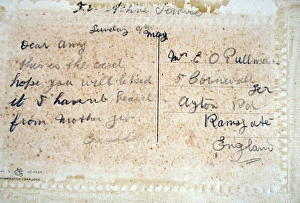 Active Service
Sunday 9th May
Dear Amy
this is the card
hope you will like
it I havent heard
from Mother yet
Mrs E O Pullman
5 Cornwall Ter
Ayton Rd
Ramsgate
England